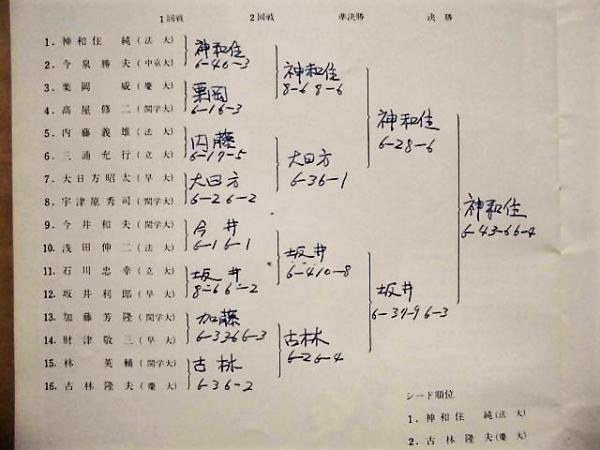 1回戦 2回戦 準決勝 決勝
1. 神和住 純 (法 大)
2. 今泉勝夫 (中京大)
3. 栗岡 威 (慶 大)
4. 高屋修二 (関学大)
5. 内藤義雄 (法 大)
6. 三浦充行 (立 大)
7. 大日方昭太 (早 大)
8. 宇津原秀司 (関学大)
9. 今井和夫 (関学大)
10. 浅田伸二 (法 大)
11. 石川忠幸 (立 大)
12. 坂井利郎 (早 大)
13. 加藤芳隆 (関学大)
14. 財津敬三 (早 大)
15. 林 英輔 (関学大)
16. 古林隆夫 (慶 大)
神和住
6-4 6-3
栗岡
6-1 6-3
内藤
6-1 7-5
大日方
6-2 6-2
今井
6-1 6-1
坂井
8-6 6-2
加藤
6-3 2-6 6-3
古林
6-3 6-2
神和住
8-6 8-6
大日方
6-3 6-1
坂井
6-4 10-8
古林
6-2 6-4
神和住
6-2 8-6
坂井
6-3 7-9 6-3
神和住
6-4 3-6 6-4
シード順位
1. 神和住 純 (法 大)
2. 古林隆夫 (慶 大)